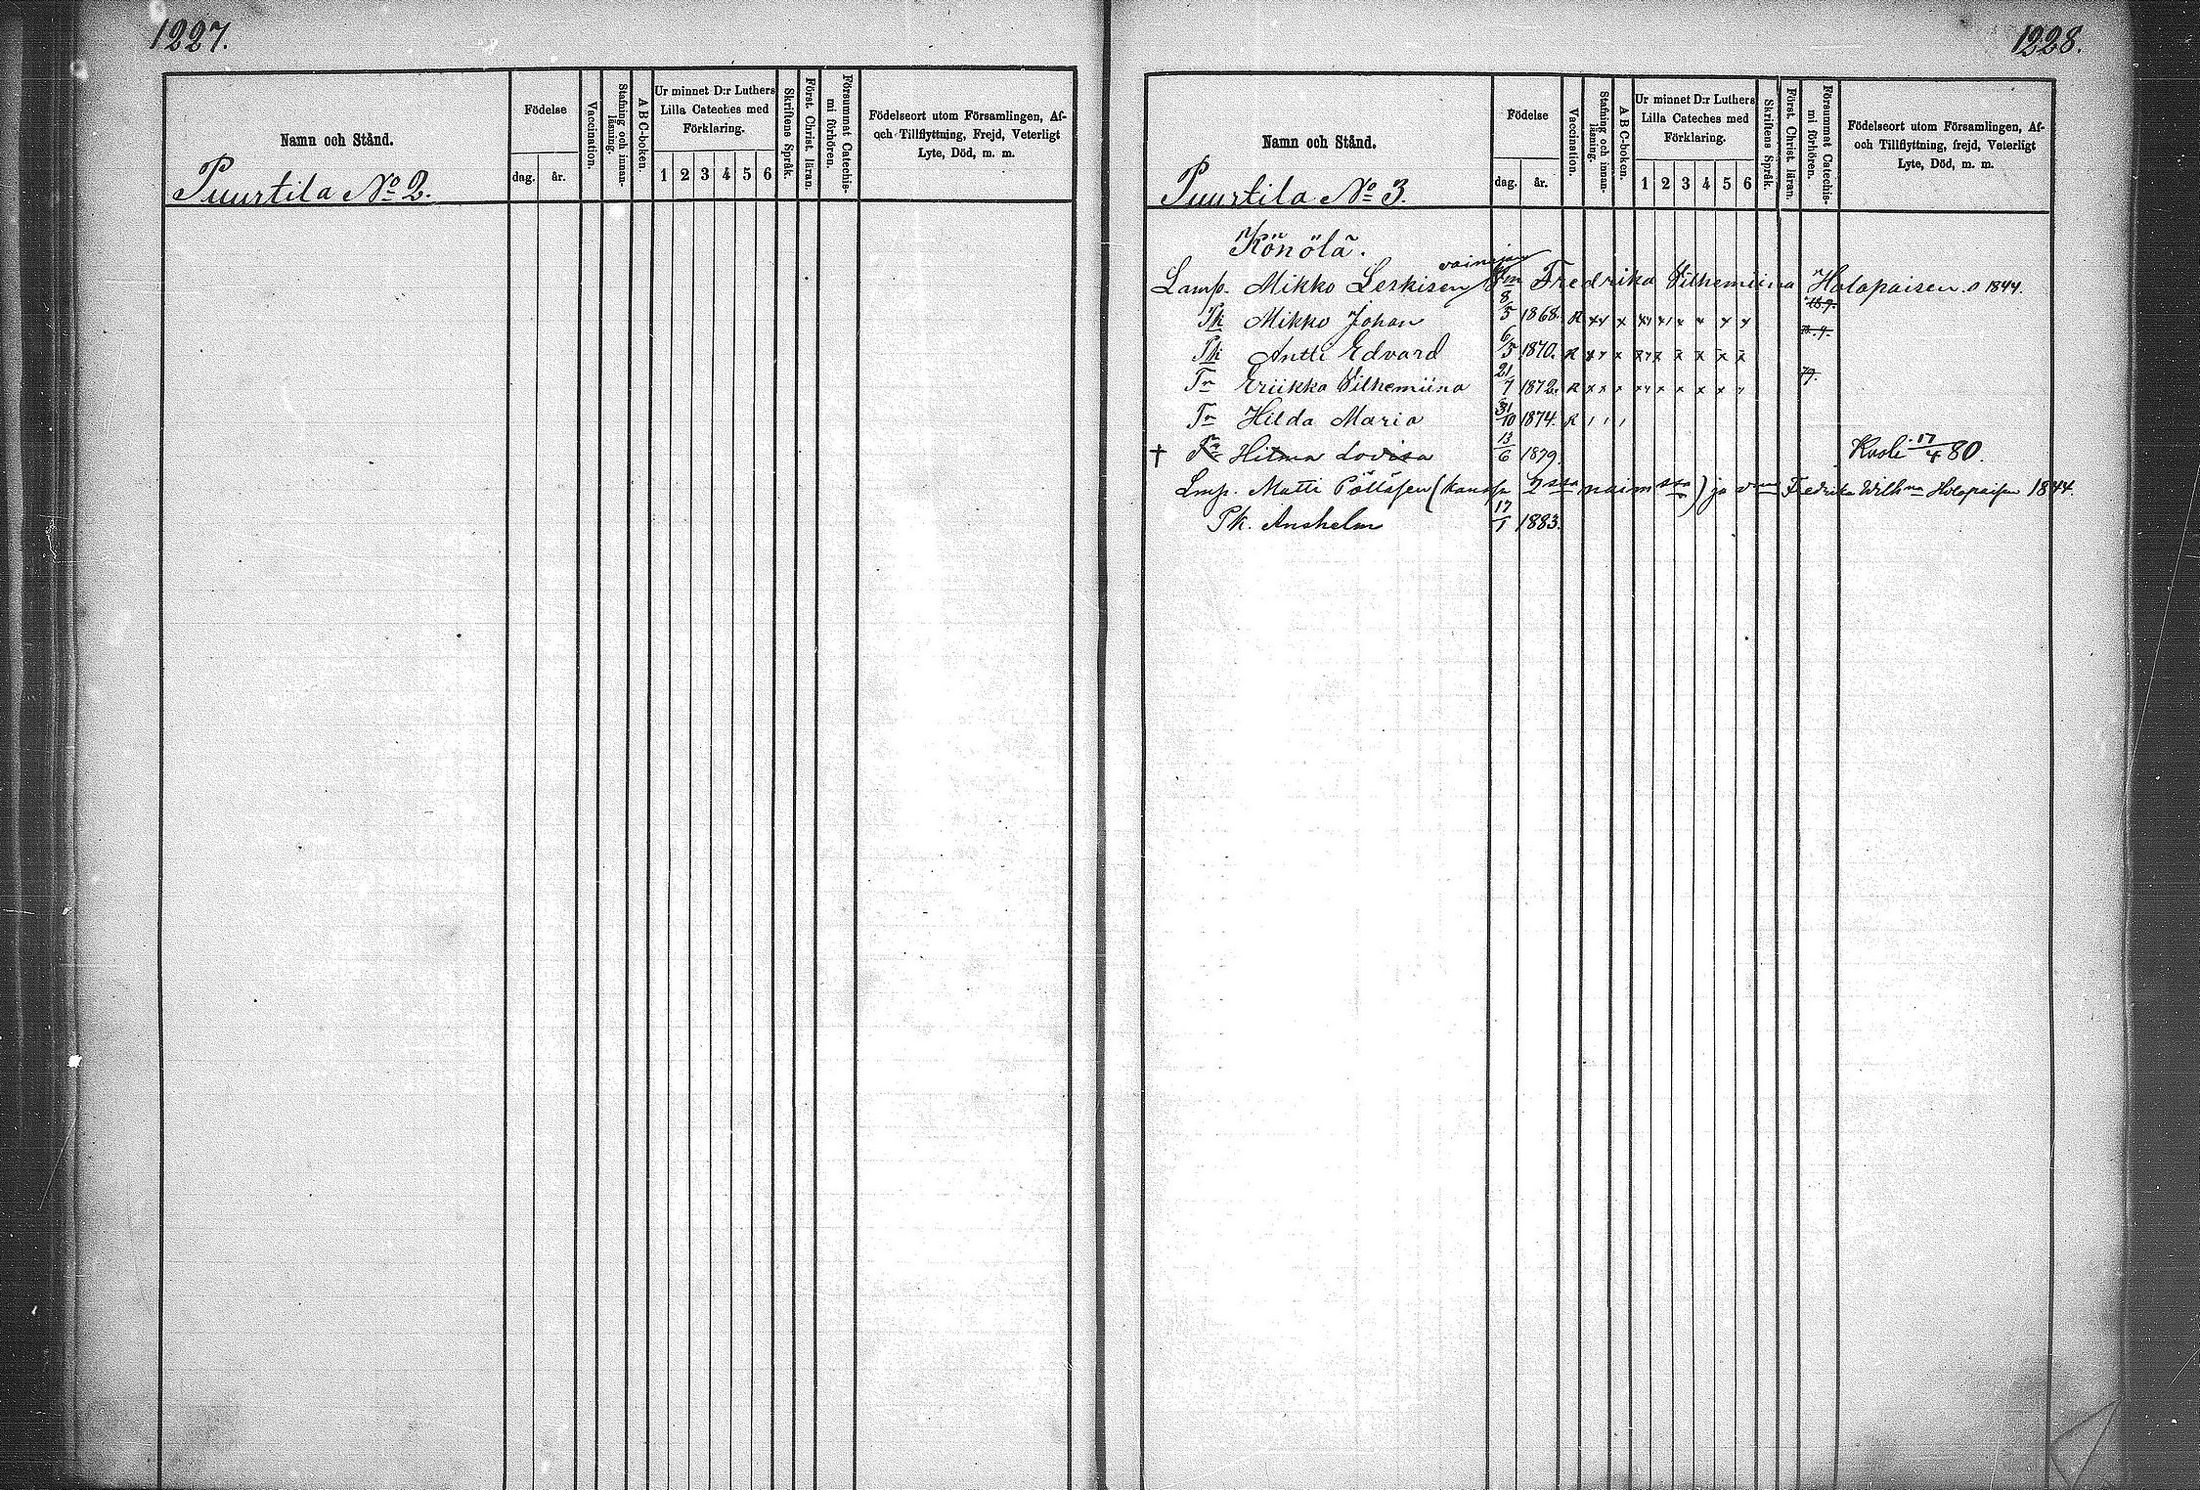 1227.
Namn och Stånd.
Födelse
dag. år.
Vaccination.
Stafning och innan-
läsning.
A B C-boken.
Ur minnet D:r Luthers
Lilla Cateches med
Förklaring.
1 2 3 4 5 6
Skriftens Språk.
Först. Christ. läran.
Försummat Catechis-
mi förhören.
Födelseort utom Församlingen, Af-
och Tillflyttning, Frejd, Veterligt
Lyte, Död, m. m.
Puurtila No 2.
1228.
Namn och Stånd.
Födelse
dag. år.
Vaccination.
Stafning och innan-
läsning.
A B C-boken.
Ur minnet D:r Luthers
Lilla Cateches med
Förklaring.
1 2 3 4 5 6
Skriftens Språk.
Först. Christ. läran.
Försummat Catechis-
mi förhören.
Födelseort utom Församlingen, Af-
och Tillflyttning, frejd, Veterligt
Lyte, Död, m. m.
Puurtila No 3.
Könölä.
Lamp. Mikko Leskisen Fredrika Vilhemiina Holopaisen 1844.
Pk Mikko Johan 8/5 1868. R
Pk Antti Edvard 6/5 1870. R
Tr Eriikka Vilhemiina 21/7 1872. R 79.
Tr Hilda Maria 31/10 1874. R
† Tr Hilma Lovisa 13/6 1879. Kuoli 17/4 80.
Lmp. Matti Pöllösen (kanssa 2 ssa naim ssa) ja Fredrika Wilh na Holopaisen 1844.
Pk. Anshelm 17/1 1883.